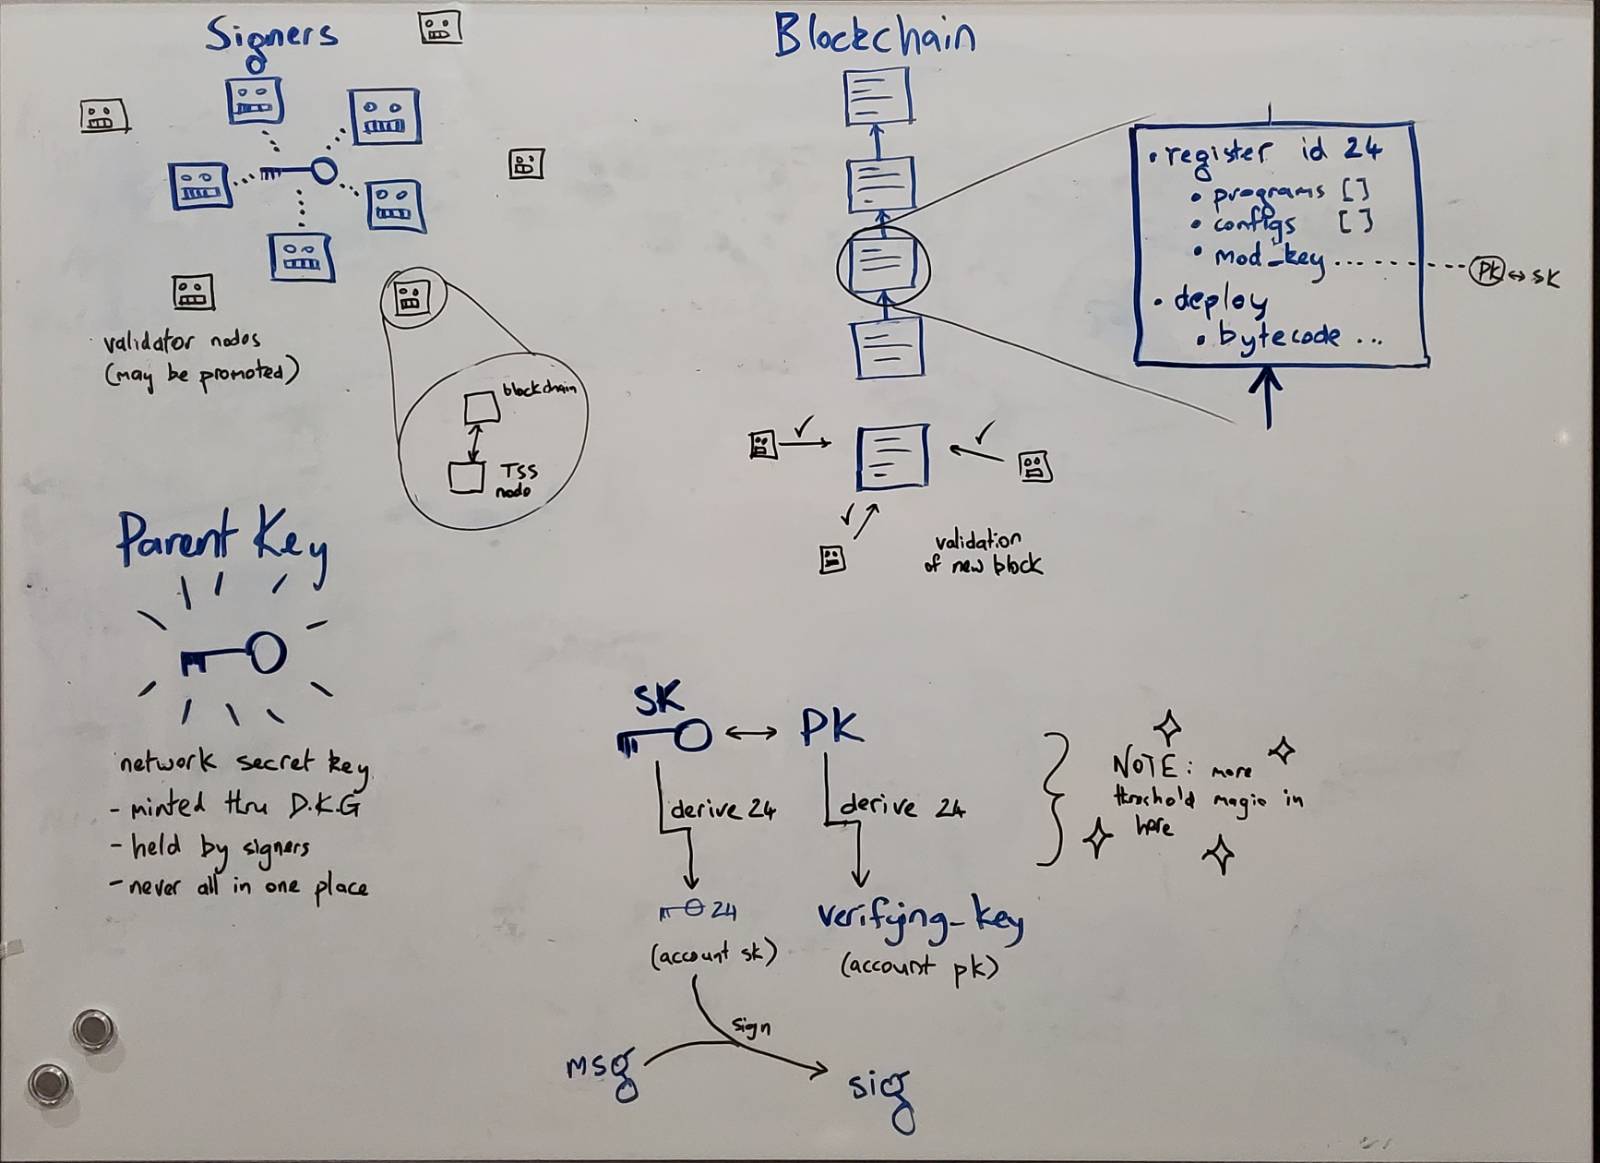 Signers
validator nodes
(may be promoted)
blockchain
TSS
node
Blockchain
• register id 24
• programs []
• configs []
• mod_key ........
PK ↔ SK
• deploy
• bytecode ...
✓
✓
✓
validation
of new block
Parent Key
network secret key
- minted thru D.K.G
- held by signers
- never all in one place
SK ↔ PK
derive 24
derive 24
24
(account sk)
verifying_key
(account pk)
NOTE: more
threshold magic in
here
sign
msg
sig